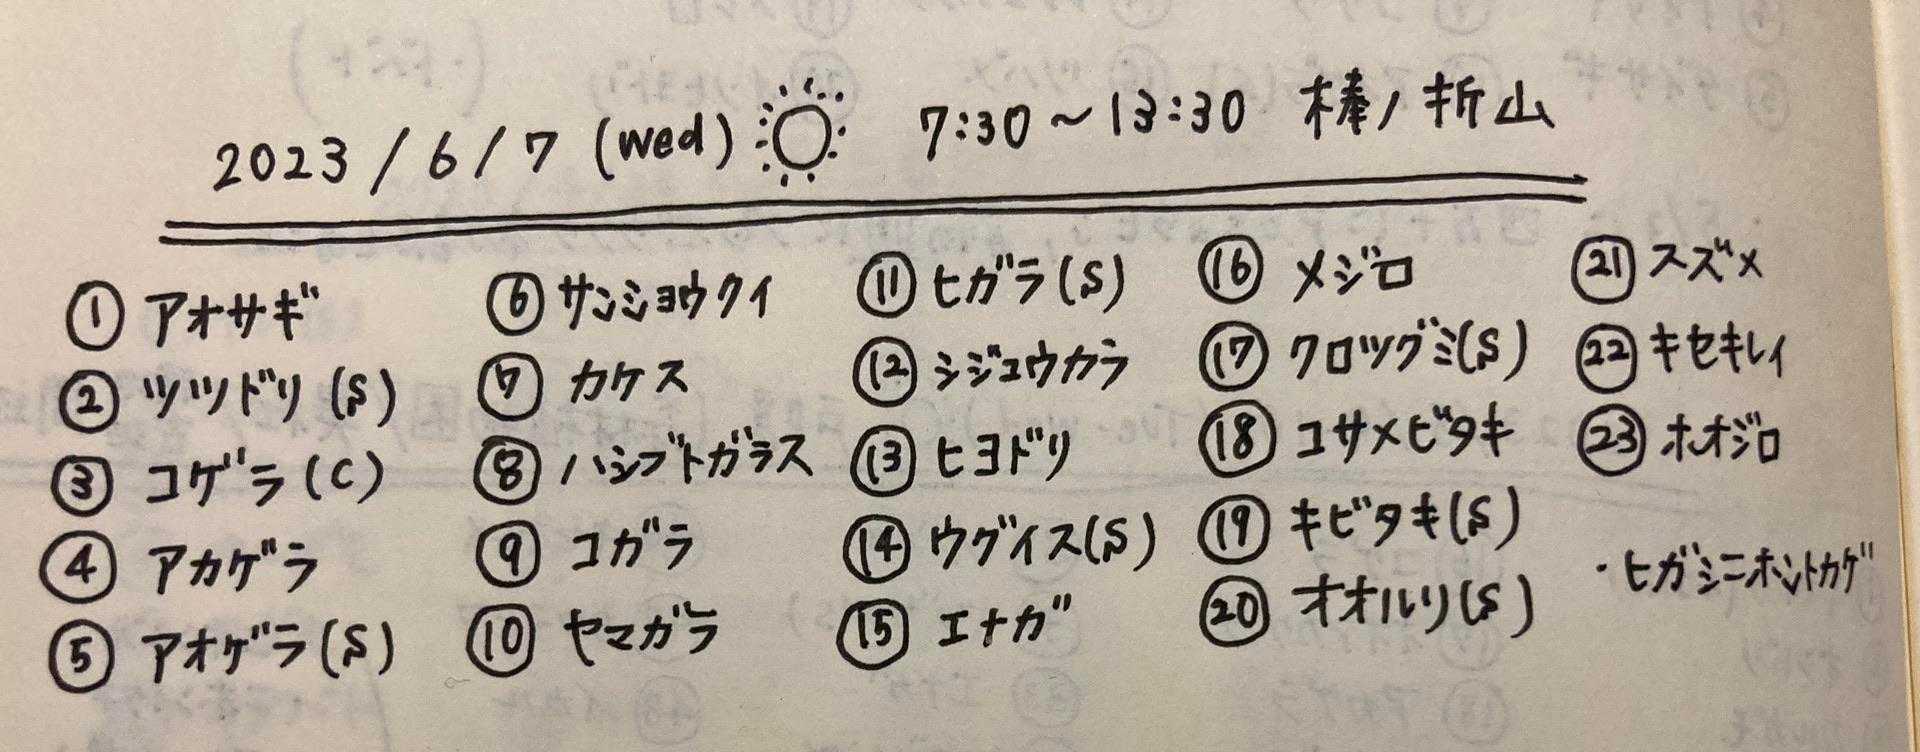 2023/6/7 (wed) 7:30〜13:30 棒ノ折山
① アオサギ
② ツツドリ(S)
③ コゲラ(C)
④ アカゲラ
⑤ アオゲラ(S)
⑥ サンショウクイ
⑦ カケス
⑧ ハシブトガラス
⑨ コガラ
⑩ ヤマガラ
⑪ ヒガラ(S)
⑫ シジュウカラ
⑬ ヒヨドリ
⑭ ウグイス(S)
⑮ エナガ
⑯ メジロ
⑰ クロツグミ(S)
⑱ コサメビタキ
⑲ キビタキ(S)
⑳ オオルリ(S)
㉑ スズメ
㉒ キセキレイ
㉓ ホオジロ
・ヒガシニホントカゲ